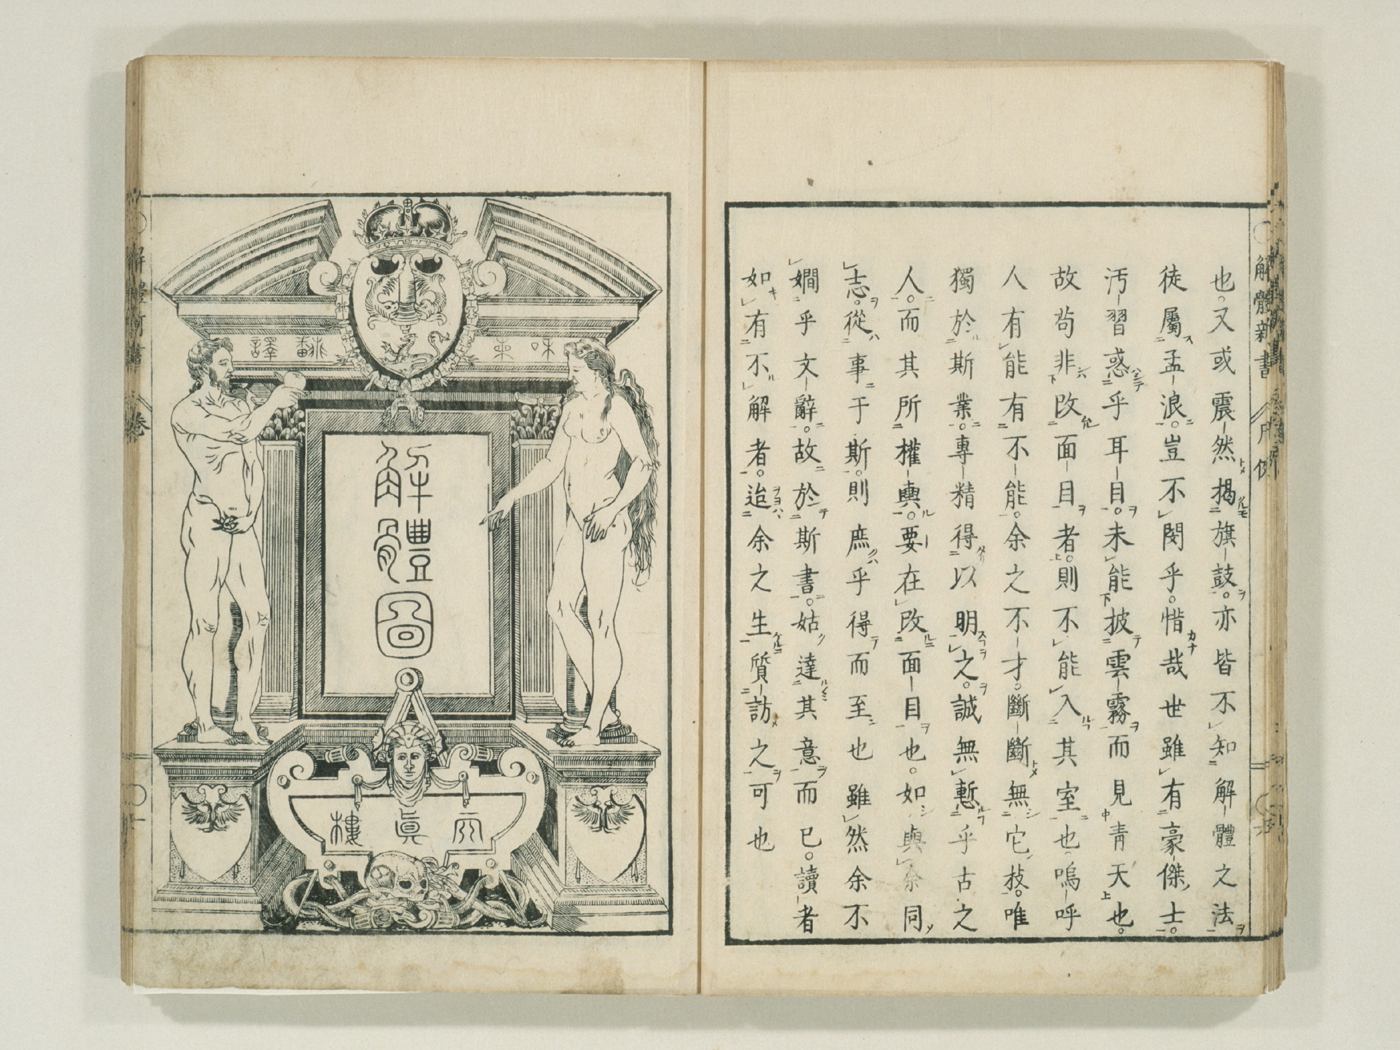 解體新書 凡例
也。又或震然揭旗鼓。亦皆不知解體之法
徒屬孟浪。豈不閔乎。惜哉世雖有豪傑士。
汚習惑乎耳目。未能披雲霧而見青天也。
故苟非改面目者。則不能入其室也嗚呼
人有能有不能。余之不才。斷斷無它技。唯
獨於斯業。專精得以明之。誠無慙乎古之
人。而其所權輿。要在改面目也。如與余同
志。從事于斯。則庶乎得而至也雖然余不
嫺乎文辭。故於斯書。姑達其意而已。讀者
如有不解者。迨余之生質訪之可也
解體圖